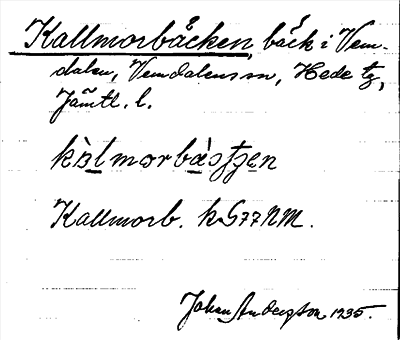 Kallmorbäcken, bäck i Vem-
dalen, Vemdalens sn, Hede tg,
Jämtl. l.
kàlmorbàsʄʒen
Kallmorb. k G77NM.
Johan Anderzson 1935.